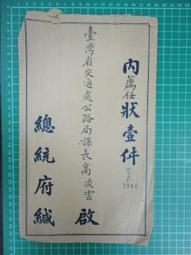 內薦任狀壹件
臺灣省交通處公路局課長高凌雲 啟
總統府緘